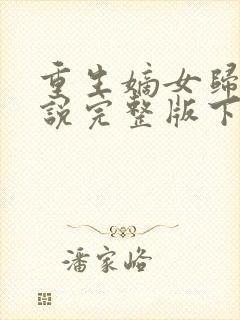 重生嫡女歸
說完整版下
潘家峪